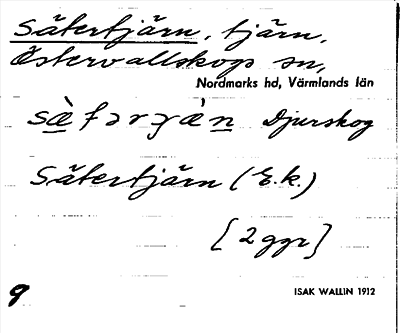 Sätertjärn, tjärn,
Östervallskogs sn,
Nordmarks hd, Värmlands län
Djurskog
Sätertjärn (E.k.)
[2 ggr]
9
ISAK WALLIN 1912